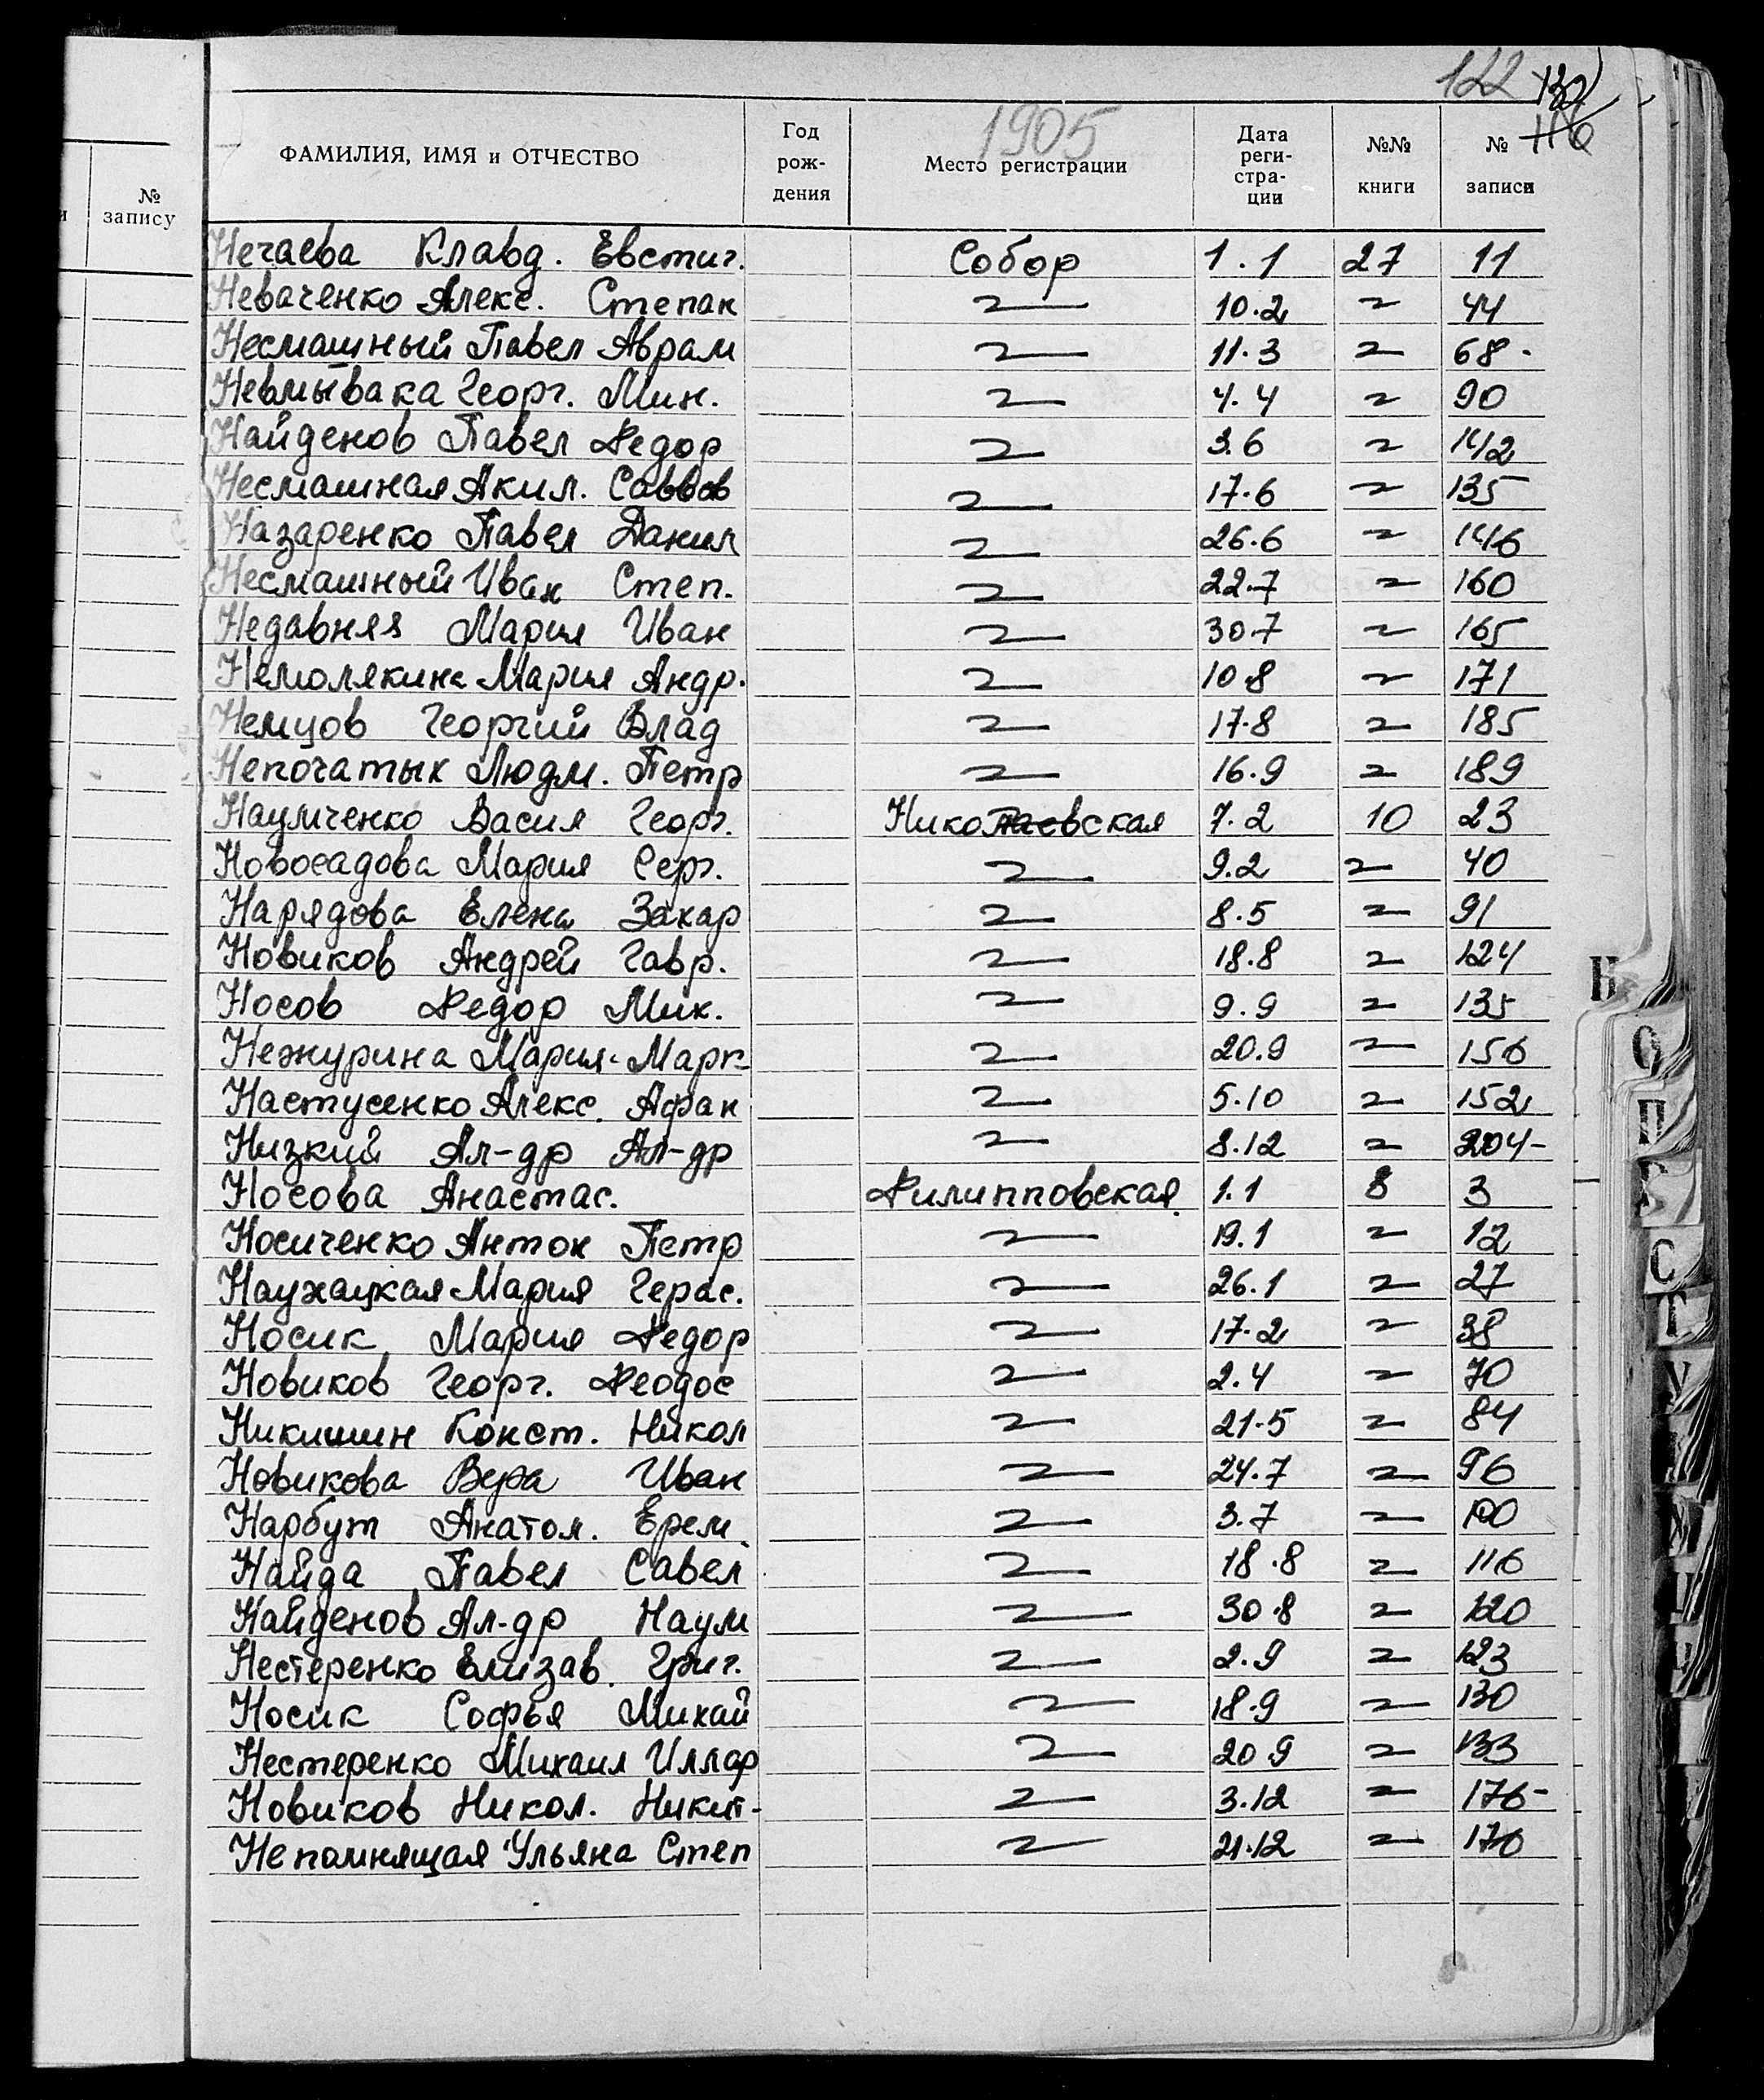 122 132
116
1905
№ запису
ФАМИЛИЯ, ИМЯ и ОТЧЕСТВО Год рож- дения Место регистрации Дата реги- стра- ции №№ книги № записи
Нечаева Клавд. Евстиг. Собор 1.1 27 11
Неваченко Алекс. Степан 〃 10.2 〃 44
Несмашный Павел Аврам 〃 11.3 〃 68
Невмывака Георг. Мин. 〃 4.4 〃 90
Найденов Павел Федор 〃 3.6 〃 142
Несмашная Акил. Саввов 〃 17.6 〃 135
Назаренко Павел Данил 〃 26.6 〃 146
Несмашный Иван Степ. 〃 22.7 〃 160
Недавняя Мария Иван 〃 30.7 〃 165
Немолякина Мария Андр. 〃 10.8 〃 171
Немцов Георгий Влад 〃 17.8 〃 185
Непочатык Людм. Петр 〃 16.9 〃 189
Наумченко Васил Георг. Николаевская 7.2 10 23
Новосадова Мария Серг. 〃 9.2 〃 40
Нарядова Елена Захар 〃 8.5 〃 91
Новиков Андрей Гавр. 〃 18.8 〃 124
Носов Федор Мик. 〃 9.9 〃 135
Нежурина Мария Марк 〃 20.9 〃 156
Настусенко Алекс. Афан 〃 5.10 〃 152
Низкий Ал-др Ал-др 〃 8.12 〃 204
Носова Анастас. Филипповская 1.1 8 3
Носиченко Антон Петр 〃 19.1 〃 12
Наухацкая Мария Герас. 〃 26.1 〃 27
Носик Мария Федор 〃 17.2 〃 38
Новиков Георг. Феодос 〃 2.4 〃 70
Никишин Конст. Никол 〃 21.5 〃 84
Новикова Вера Иван 〃 24.7 〃 96
Нарбут Анатол. Ерем. 〃 3.7 〃 100
Найда Павел Савел 〃 18.8 〃 116
Найденов Ал-др Наум 〃 30.8 〃 120
Нестеренко Елизав. Григ. 〃 2.9 〃 123
Носик Софья Михай 〃 18.9 〃 130
Нестеренко Михаил Иллар 〃 20 9 〃 133
Новиков Никол. Никит- 〃 3.12 〃 176-
Непомнящая Ульяна Степ 〃 21.12 〃 170
Н
О
П
С
Т
У